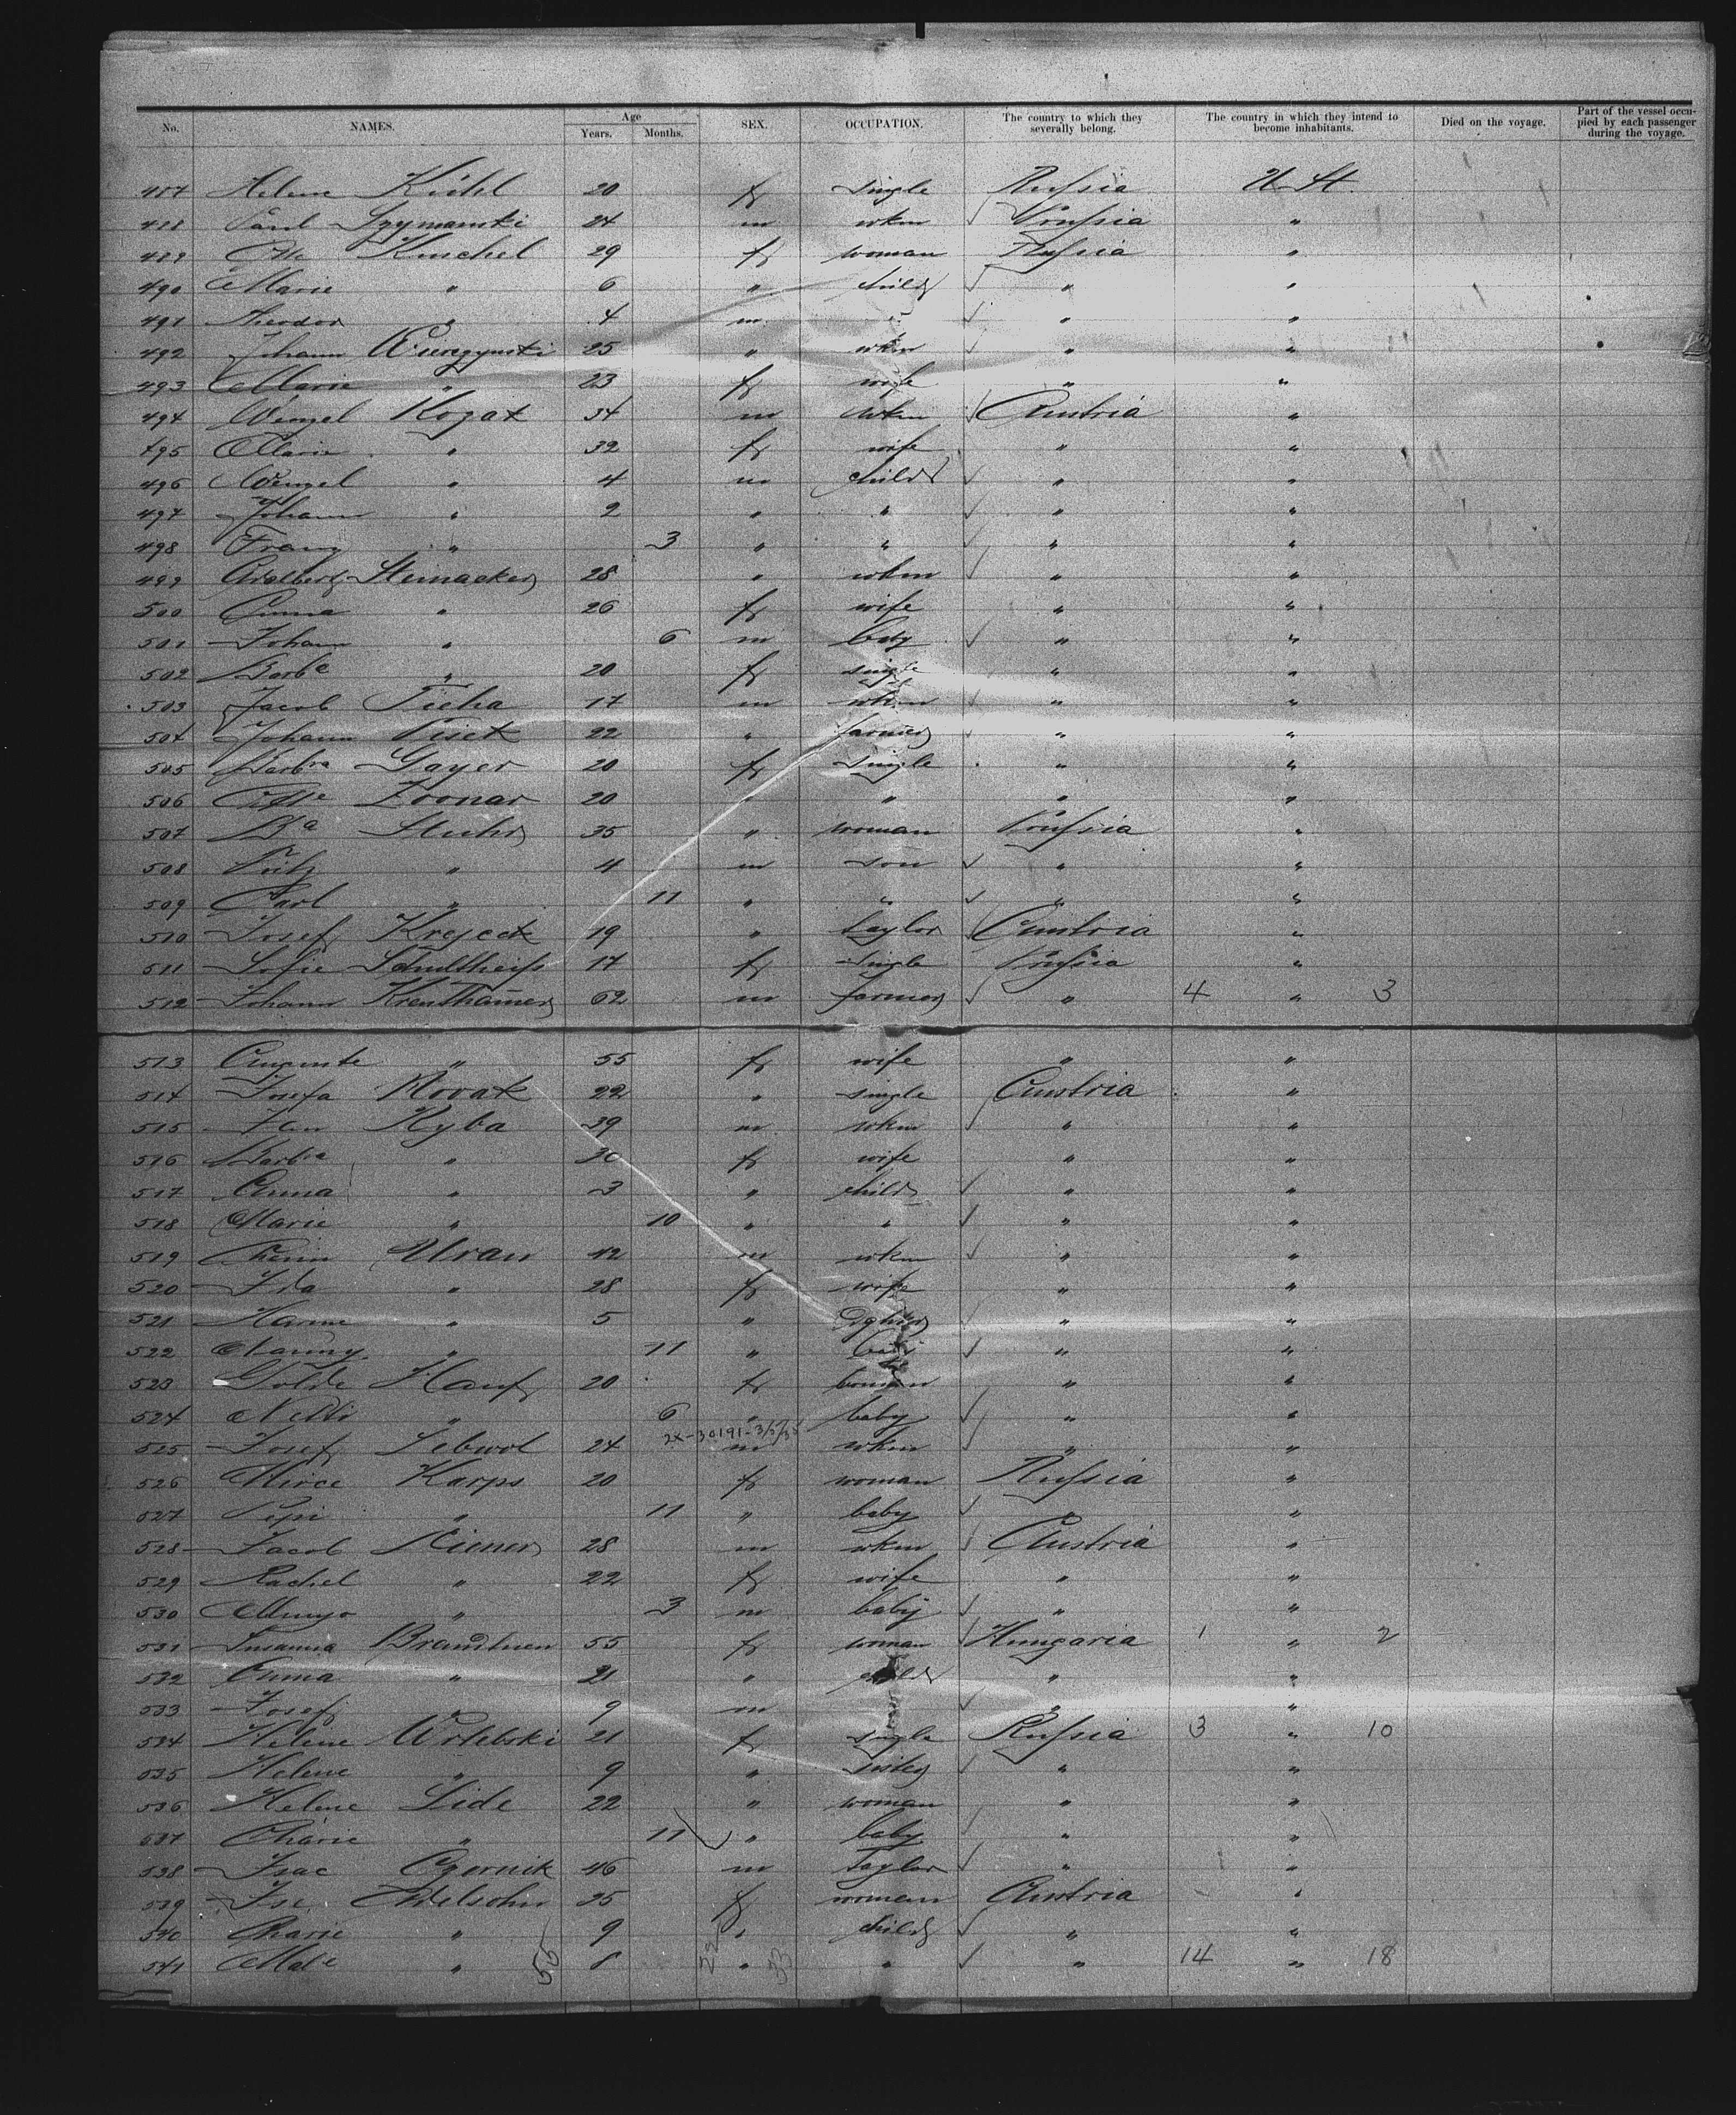 No. NAMES. Age Years. Months. SEX. OCCUPATION. The country to which they severally belong. The country in which they intend to become inhabitants. Died on the voyage. Part of the vessel occupied by each passenger during the voyage.
487 Helene Kühl 20 f single Russia U. St.
488 Paul Szymanski 24 m wkm Prussia "
489 Kuschel 29 f woman Russia "
490 Marie " 6 " child " "
491 Theodor " 4 m " " "
492 Johann 25 " wkm " "
493 Marie " 23 f wife " "
494 Wenzel Kozak 34 m wkm Austria "
495 Marie " 32 f wife " "
496 Wenzel " 4 m child " "
497 Johann " 2 " " " "
498 Franz " 3 " " " "
499 Adalbert 28 " wkm " "
500 Anna " 26 f wife " "
501 Johann " 6 m baby " "
502 Barba " 20 f single " "
503 Jacob Ticha 17 m wkm " "
504 Johann Pisek 22 " farmer " "
505 Barbra Gayer 20 f single " "
506 20 " " " "
507 Stuhr 35 " woman Prussia "
508 Fritz " 4 m son " "
509 Carl " 11 " " " "
510 Josef Krejcek 19 " taylor Austria "
511 Sofie Schultheiss 17 f single Prussia "
512 Johann 62 m farmer " 4 " 3
513 Auguste " 55 f wife " "
514 Josefa Novak 22 " single Austria "
515 Ryba 39 m wkm " "
516 Barbra " 30 f wife " "
517 Anna " 3 " child " "
518 Marie " 10 " " " "
519 Uran 42 m wkm " "
520 Ida " 28 f wife " "
521 Hanne " 5 " " "
522 Nanny " 11 " " "
523 Golde Hauf 20 f woman " "
524 Netti " 6 " baby " "
2X-30191-3/5/
525 Josef 24 m wkm " "
526 Mirce Karps 20 f woman Russia "
527 Pepi " 11 " baby " "
528 Jacob Riemer 28 m wkm Austria "
529 Rachel " 22 f wife " "
530 " 3 m baby " "
531 Susanna 55 f woman Hungaria 1 " 2
532 Anna " 21 " child " "
533 Josef " 9 m " "
534 Helene Wrlebski 21 f single Russia 3 " 10
535 Helene " 9 " sister " "
536 Helene Lide 22 " woman " "
537 Charie " 11 " baby " "
538 Isac Czernik 46 m Taylor " "
539 35 f woman Austria "
540 Charie " 9 " child " "
541 " 8 " " " 14 " 18
55 22 33